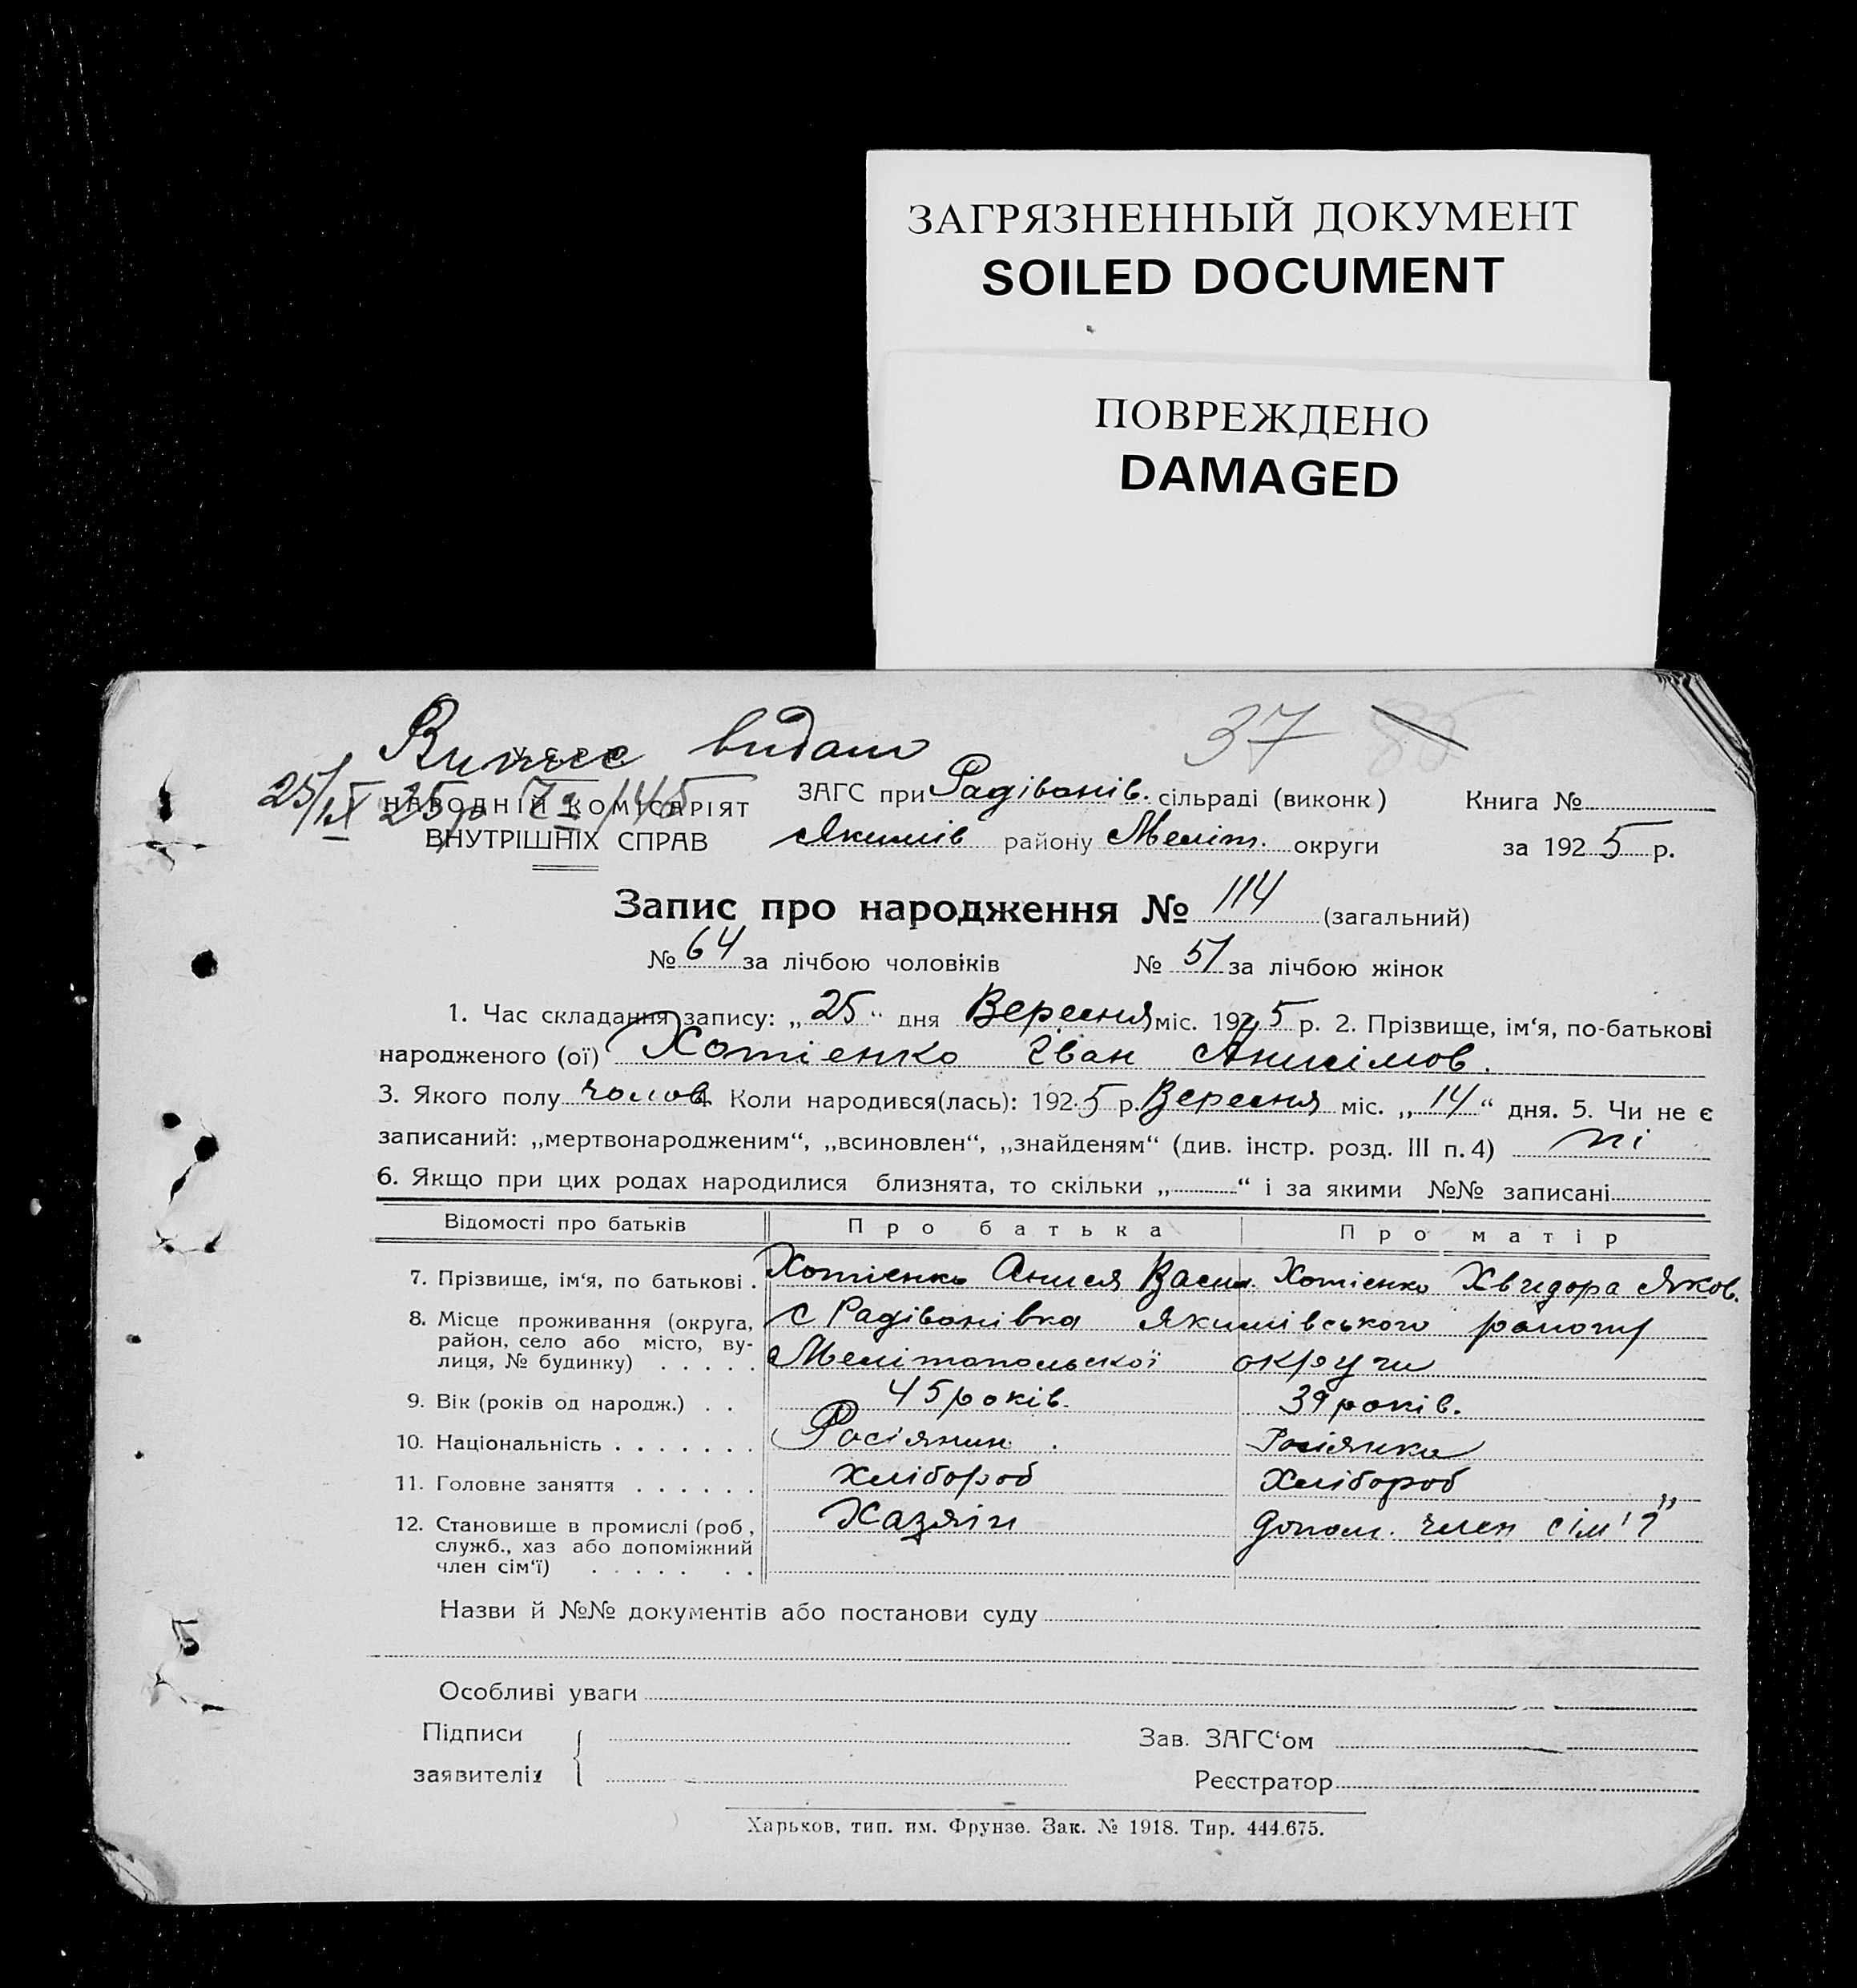 ЗАГРЯЗНЕННЫЙ ДОКУМЕНТ
SOILED DOCUMENT
ПОВРЕЖДЕНО
DAMAGED
Випис видано
37
25/IX 25р
УСРР
НАРОДНІЙ КОМІСАРІЯТ
ВНУТРІШНІХ СПРАВ
ЗАГС при Радіванів. сільраді (виконк)
Якимів району Меліт. округи
Книга №
за 1925 р.
Запис про народження № 114 (загальний)
№ 64 за лічбою чоловіків № 51 за лічбою жінок
1. Час складання запису: „25“ дня Вересня міс. 1925 р. 2. Прізвище, ім‘я, по-батькові
народженого (ої) Хотієнко Іван Анисімов.
3. Якого полу чолов. 4. Коли народився(лась): 1925 р. Вересня міс. „14“ дня. 5. Чи не є
записаний: „мертвонародженим“, „всиновлен“, „знайденям“ (див. інстр. розд. III п. 4) ні
6. Якщо при цих родах народилися близнята, то скільки „ “ і за якими №№ записані
Відомості про батьків Про батька Про матір
7. Прізвище, ім‘я, по батькові . Хотієнко Анися Васил. Хотієнко Хвидора Яков.
8. Місце проживання (округа, с Радіванівка Якимівського району
район, село або місто, ву-
лиця, № будинку) . . . . . Мелітопольської округи
9. Вік (років од народж.) . . 45 років. 39 років.
10. Національність . . . . . . . Росіянин. Росіянка
11. Головне заняття . . . . . . Хлібороб Хлібороб
12. Становище в промислі (роб, Хазяїн Допом. член сім'ї
служб., хаз або допоміжний
член сім‘ї) . . . . . . .
Назви й №№ документів або постанови суду
Особливі уваги
Підписи
заявителів
Зав. ЗАГС‘ом
Реєстратор
Харьков, тип. им. Фрунзе. Зак. № 1918. Тир. 444.675.